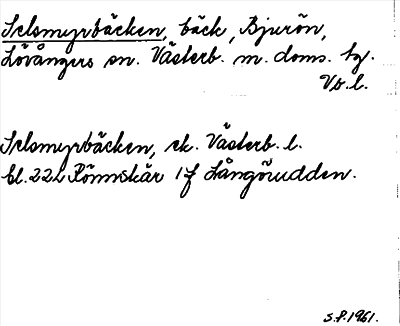 Selsmyrbäcken, bäck, Bjurön,
Lövångers sn. Västerb. m. doms. tg.
Vb. l.
Selsmyrbäcken, ek. Västerb. l.
bl. 222 Rönnskär 1 f Långöudden.
S.P. 1961.